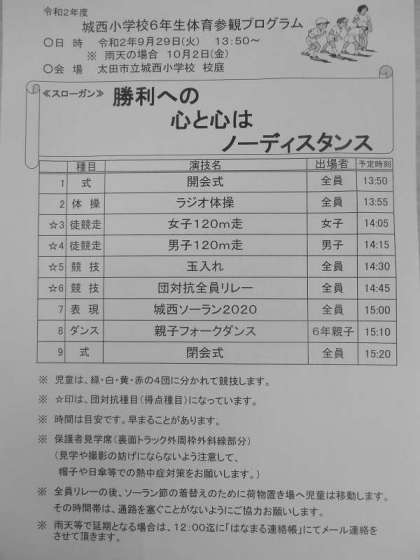 令和2年度
城西小学校6年生体育参観プログラム
○日 時 令和2年9月29日(火) 13:50～
※ 雨天の場合 10月2日(金)
○会 場 太田市立城西小学校 校庭
≪スローガン≫ 勝利への
心と心は
ノーディスタンス
種目 演技名 出場者 予定時刻
1 式 開会式 全員 13:50
2 体 操 ラジオ体操 全員 13:55
☆3 徒競走 女子120m走 女子 14:05
☆4 徒競走 男子120m走 男子 14:15
☆5 競 技 玉入れ 全員 14:30
☆6 競 技 団対抗全員リレー 全員 14:45
7 表 現 城西ソーラン2020 全員 15:00
8 ダンス 親子フォークダンス 6年親子 15:10
9 式 閉会式 全員 15:20
※ 児童は、緑・白・黄・赤の4団に分かれて競技します。
※ ☆印は、団対抗種目(得点種目)になっています。
※ 時間は目安です。早まることがあります。
※ 保護者見学席(裏面トラック外周枠外斜線部分)
(見学や撮影の妨げにならないよう注意して、
帽子や日傘等での熱中症対策をお願いします。)
※ 全員リレーの後、ソーラン節の着替えのために荷物置き場へ児童は移動します。
その時間帯は、通路を塞ぐことがないようにご協力お願いします。
※ 雨天等で延期となる場合は、12:00迄に「はなまる連絡帳」にてメール連絡を
させて頂きます。